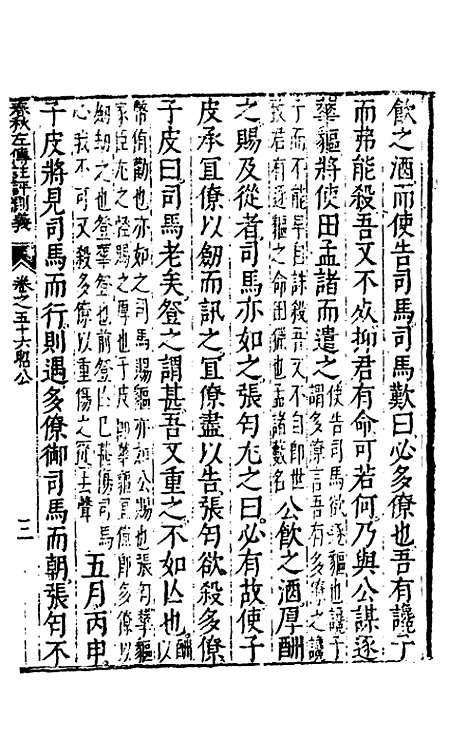 飲之酒而使告司馬司馬歎曰必多僚也吾有讒子
而弗能殺吾又不死抑君有命可若何乃與公謀逐
華貙將使田孟諸而遣之使告司馬欲逐貙也讒子謂多僚言吾有多僚之讒
子而不能早自誅殺吾又不自即世故若有逐貙之命田獵也孟諸藪名公飲之酒厚酬
之賜及從者司馬亦如之張匄尤之曰必有故使子
皮承宜僚以劒而訊之宜僚盡以告張匄欲殺多僚
子皮曰司馬老矣登之謂甚吾又重之不如亾也酬以
幣侑勸也亦如之司馬賜貙亦如公賜張匄華貙
家臣尤之怪賜之厚也子皮華貙宜僚即多僚以
劒劫之也登華登也亾已甚傷司馬
心我不可又殺多僚以重傷之從上聲五月丙申
子皮將見司馬而行則遇多僚御司馬而朝張匄不
春秋左傳註評測義
卷之五十六昭公
三